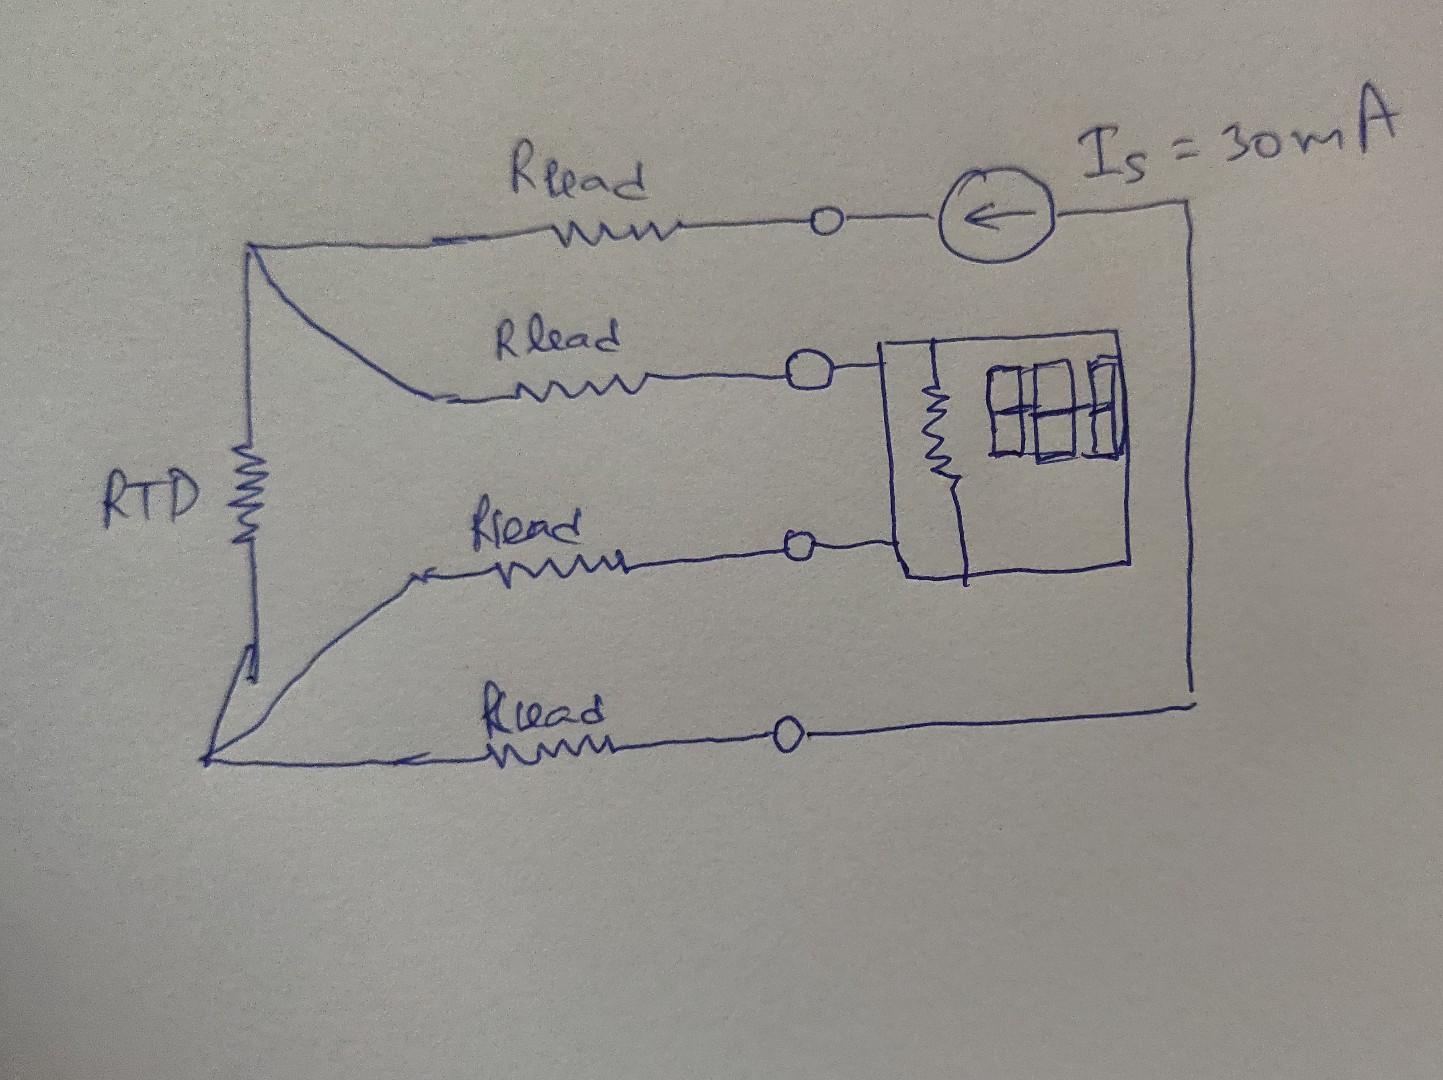 Rlead
Is = 30mA
Rlead
RTD
Rlead
Rlead